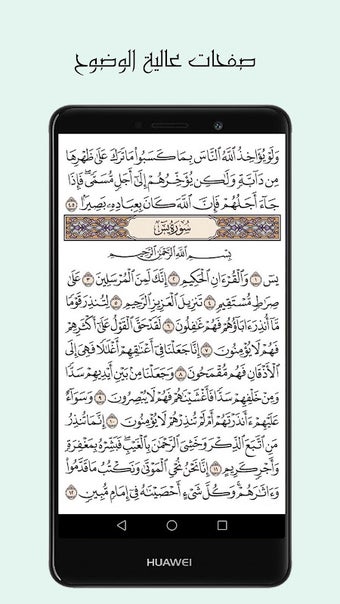 صفحات عالية الوضوح
وَلَوْ يُؤَاخِذُ ٱللَّهُ ٱلنَّاسَ بِمَا كَسَبُوا۟ مَا تَرَكَ عَلَىٰ ظَهْرِهَا
مِن دَآبَّةٍ وَلَٰكِن يُؤَخِّرُهُمْ إِلَىٰٓ أَجَلٍ مُّسَمًّى ۖ فَإِذَا
جَآءَ أَجَلُهُمْ فَإِنَّ ٱللَّهَ كَانَ بِعِبَادِهِۦ بَصِيرًۢا ٤٥
سُورَةُ يسٓ
بِسْمِ ٱللَّهِ ٱلرَّحْمَٰنِ ٱلرَّحِيمِ
يسٓ ١ وَٱلْقُرْءَانِ ٱلْحَكِيمِ ٢ إِنَّكَ لَمِنَ ٱلْمُرْسَلِينَ ٣ عَلَىٰ
صِرَٰطٍ مُّسْتَقِيمٍ ٤ تَنزِيلَ ٱلْعَزِيزِ ٱلرَّحِيمِ ٥ لِتُنذِرَ قَوْمًا
مَّآ أُنذِرَ ءَابَآؤُهُمْ فَهُمْ غَٰفِلُونَ ٦ لَقَدْ حَقَّ ٱلْقَوْلُ عَلَىٰٓ أَكْثَرِهِمْ
فَهُمْ لَا يُؤْمِنُونَ ٧ إِنَّا جَعَلْنَا فِىٓ أَعْنَٰقِهِمْ أَغْلَٰلًا فَهِىَ إِلَى
ٱلْأَذْقَانِ فَهُم مُّقْمَحُونَ ٨ وَجَعَلْنَا مِنۢ بَيْنِ أَيْدِيهِمْ سَدًّا
وَمِنْ خَلْفِهِمْ سَدًّا فَأَغْشَيْنَٰهُمْ فَهُمْ لَا يُبْصِرُونَ ٩ وَسَوَآءٌ
عَلَيْهِمْ ءَأَنذَرْتَهُمْ أَمْ لَمْ تُنذِرْهُمْ لَا يُؤْمِنُونَ ١٠ إِنَّمَا تُنذِرُ
مَنِ ٱتَّبَعَ ٱلذِّكْرَ وَخَشِىَ ٱلرَّحْمَٰنَ بِٱلْغَيْبِ ۖ فَبَشِّرْهُ بِمَغْفِرَةٍ
وَأَجْرٍ كَرِيمٍ ١١ إِنَّا نَحْنُ نُحْىِ ٱلْمَوْتَىٰ وَنَكْتُبُ مَا قَدَّمُوا۟
وَءَاثَٰرَهُمْ ۚ وَكُلَّ شَىْءٍ أَحْصَيْنَٰهُ فِىٓ إِمَامٍ مُّبِينٍ ١٢
HUAWEI